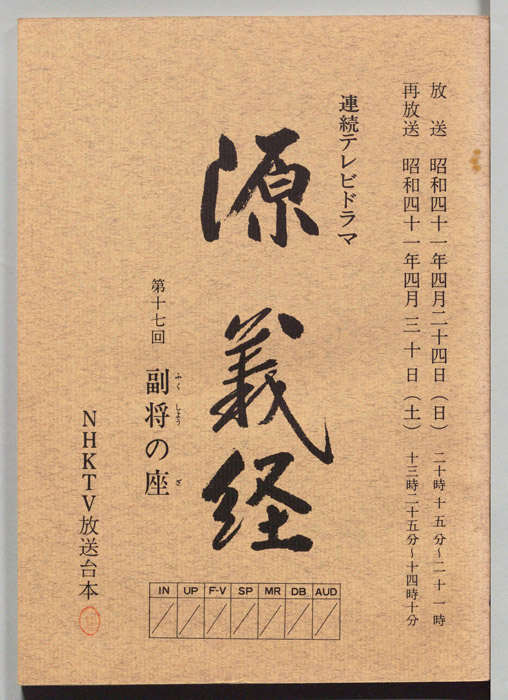 放送 昭和四十一年四月二十四日（日） 二十時十五分～二十一時
再放送 昭和四十一年四月三十日（土） 十三時二十五分～十四時十分
連続テレビドラマ
源義経
第十七回 副将の座
ふくしょう ざ
NHKTV放送台本
IN UP F-V SP MR DB AUD